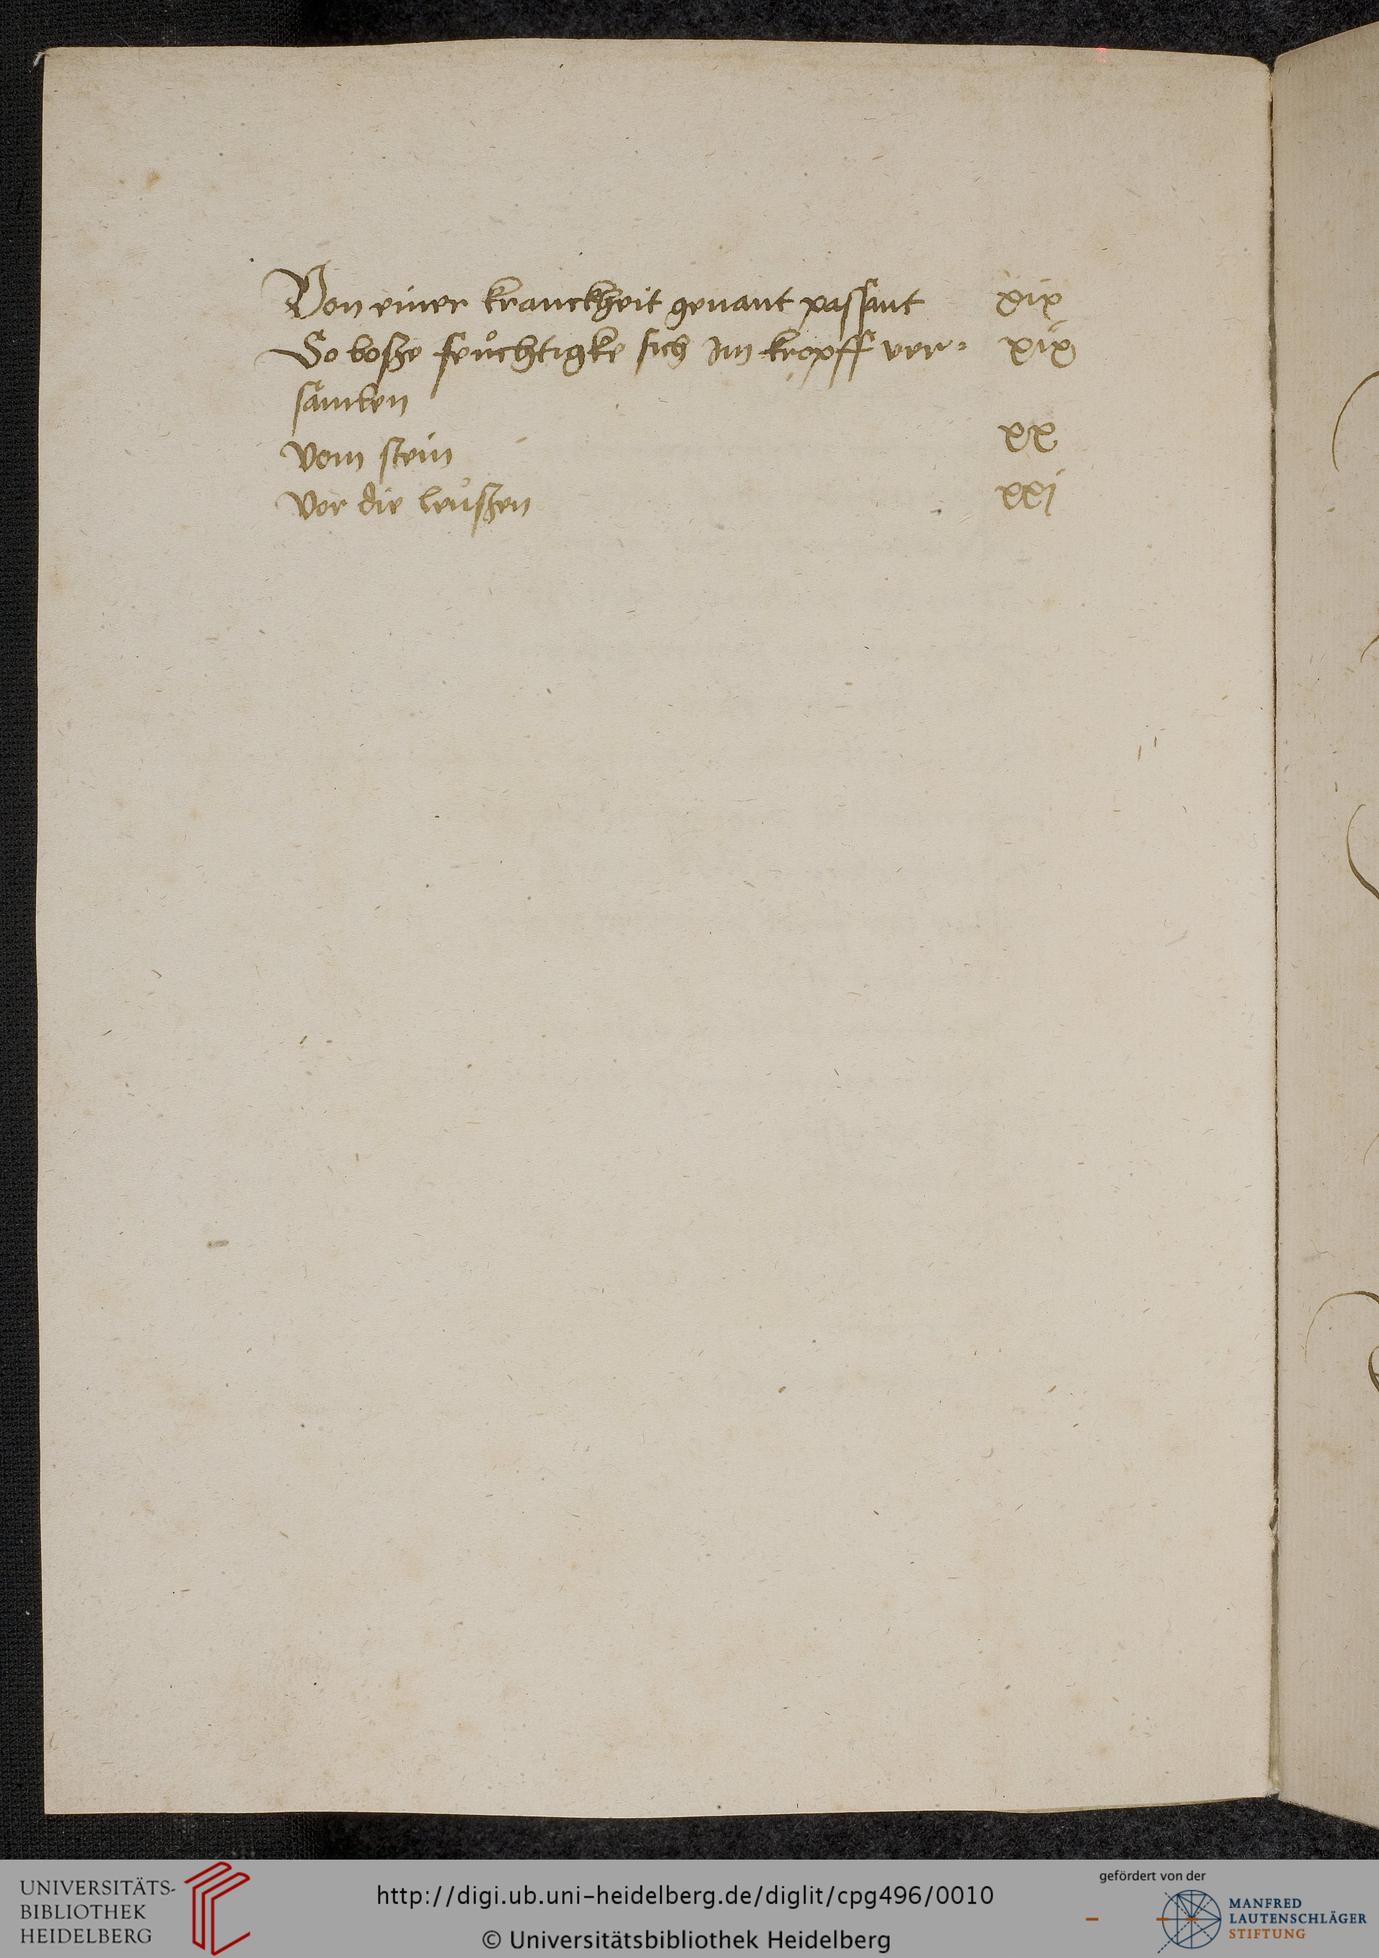 Von einer kranckheit genant passant xix
So bosze feuͦchtigke sich Im kropff ver- xix
sämlen
vom stein xx
vor die leuͦszen xxj
UNIVERSITÄTS-
BIBLIOTHEK
HEIDELBERG
http://digi.ub.uni-heidelberg.de/diglit/cpg496/0010
© Universitätsbibliothek Heidelberg
gefördert von der
MANFRED
LAUTENSCHLÄGER
STIFTUNG